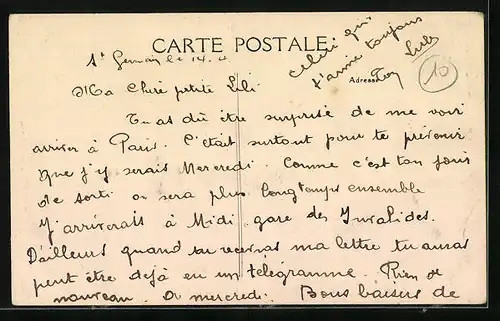 CARTE POSTALE
St Germain le 14.
Ma Chère petite Lili.
Adresse
10
Tu as dû être surprise de me voir
arriver à Paris. C'était surtout pour te prévenir
que j'y serais Mercredi. Comme c'est ton jour
de sorti on sera plus longtemps ensemble
J'arriverais à Midi gare des Invalides.
D'ailleurs quand tu recevras ma lettre tu auras
peut être dejà eu un télégramme. Rien de
nouveau. A mercredi. Bons baisers de
celui qui
t'aime toujours
Ton